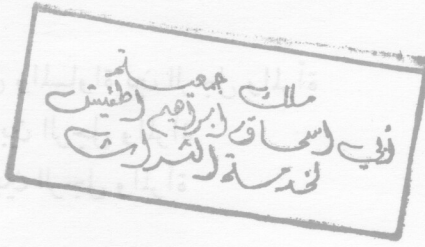 ملك جمعية
أبي إسحاق إبراهيم اطفيش
لخدمة التراث